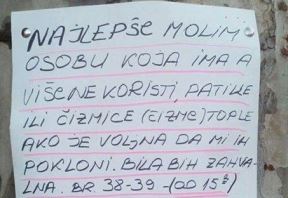 NAJLEPŠE MOLIM
OSOBU KOJA IMA A
VIŠE NE KORISTI, PATIKE
ILI ČIZMICE (ČIZME) TOPLE
AKO JE VOLJNA DA MI IH
POKLONI. BILA BIH ZAHVA-
LNA. BR 38-39 - (OD 15